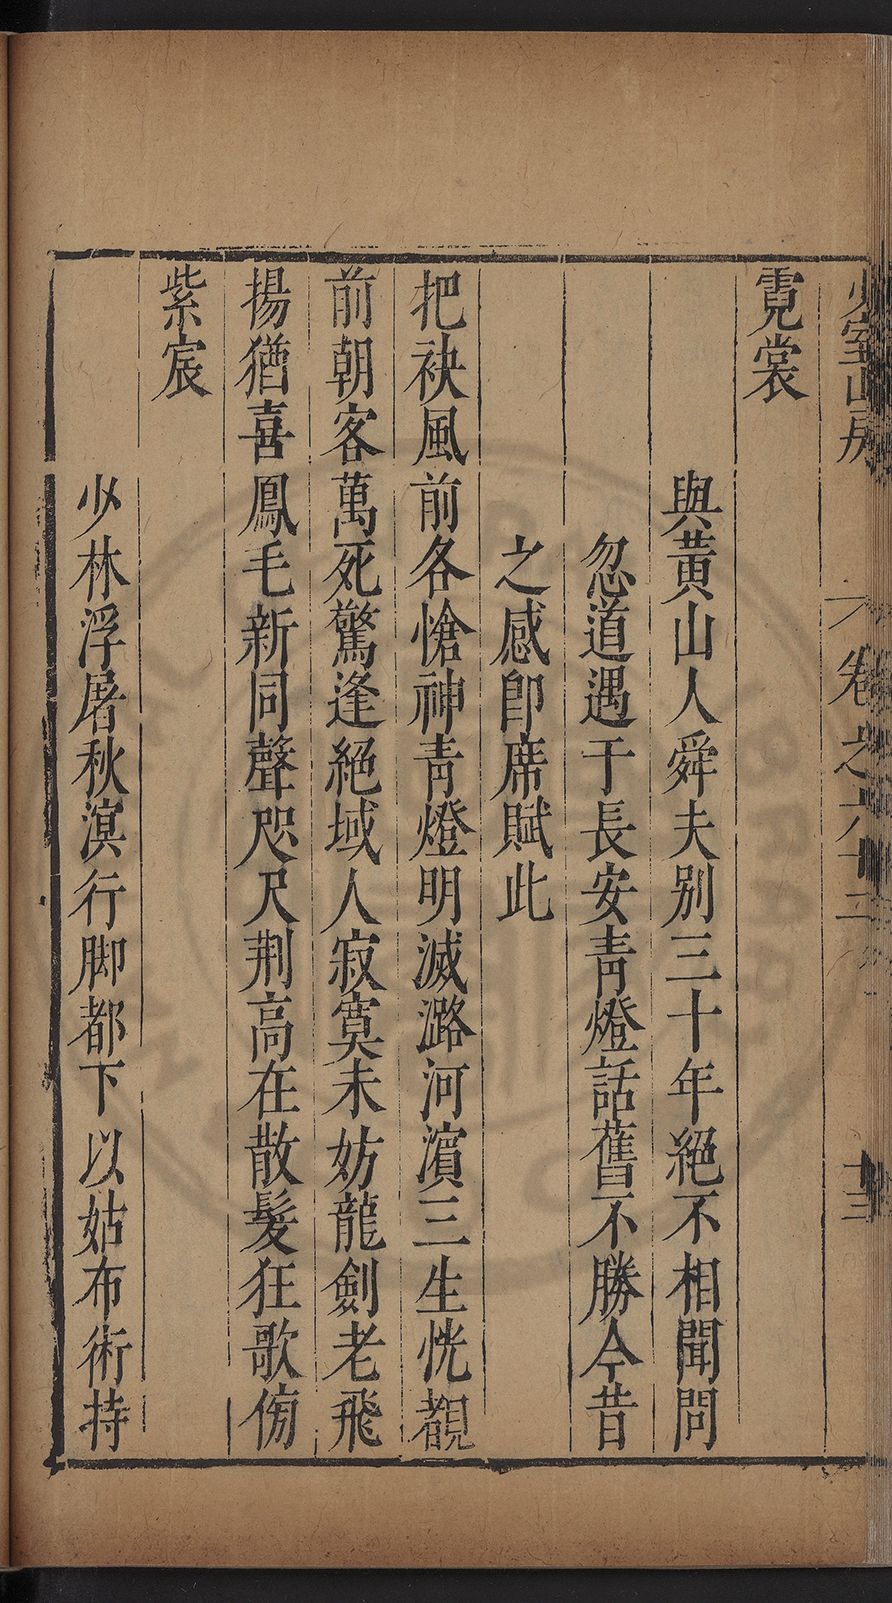 少室山房
卷之六十三
十三
霓裳
與黃山人舜夫别三十年絕不相聞問
忽道遇于長安青燈話舊不勝今昔
之感卽席賦此
把袂風前各愴神青燈明滅潞河濵三生恍覩
前朝客萬死驚逢絕域人寂寞未妨龍劍老飛
揚猶喜鳳毛新同聲咫尺荆高在散髮狂歌傍
紫宸
少林浮屠秋溟行脚都下以姑布術持